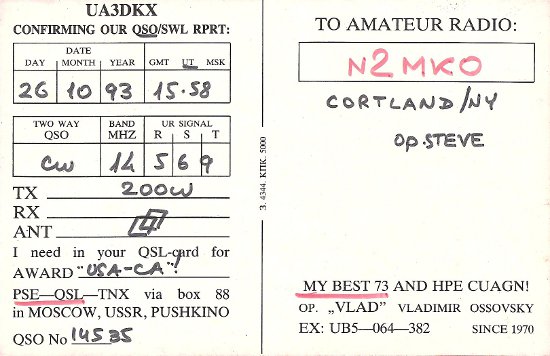 UA3DKX
CONFIRMING OUR QSO/SWL RPRT:
DATE
DAY MONTH YEAR GMT UT MSK
26 10 93 15.58
TWO WAY QSO BAND MHZ UR SIGNAL R S T
CW 14 5 6 9
TX 200W
RX
ANT
I need in your QSL-card for
AWARD "USA-CA"!
PSE—QSL—TNX via box 88
in MOSCOW, USSR, PUSHKINO
QSO No 14535
З. 4344. КПК. 5000
TO AMATEUR RADIO:
N2MKO
CORTLAND/NY
Op. STEVE
MY BEST 73 AND HPE CUAGN!
OP. „VLAD" VLADIMIR OSSOVSKY
EX: UB5—064—382 SINCE 1970